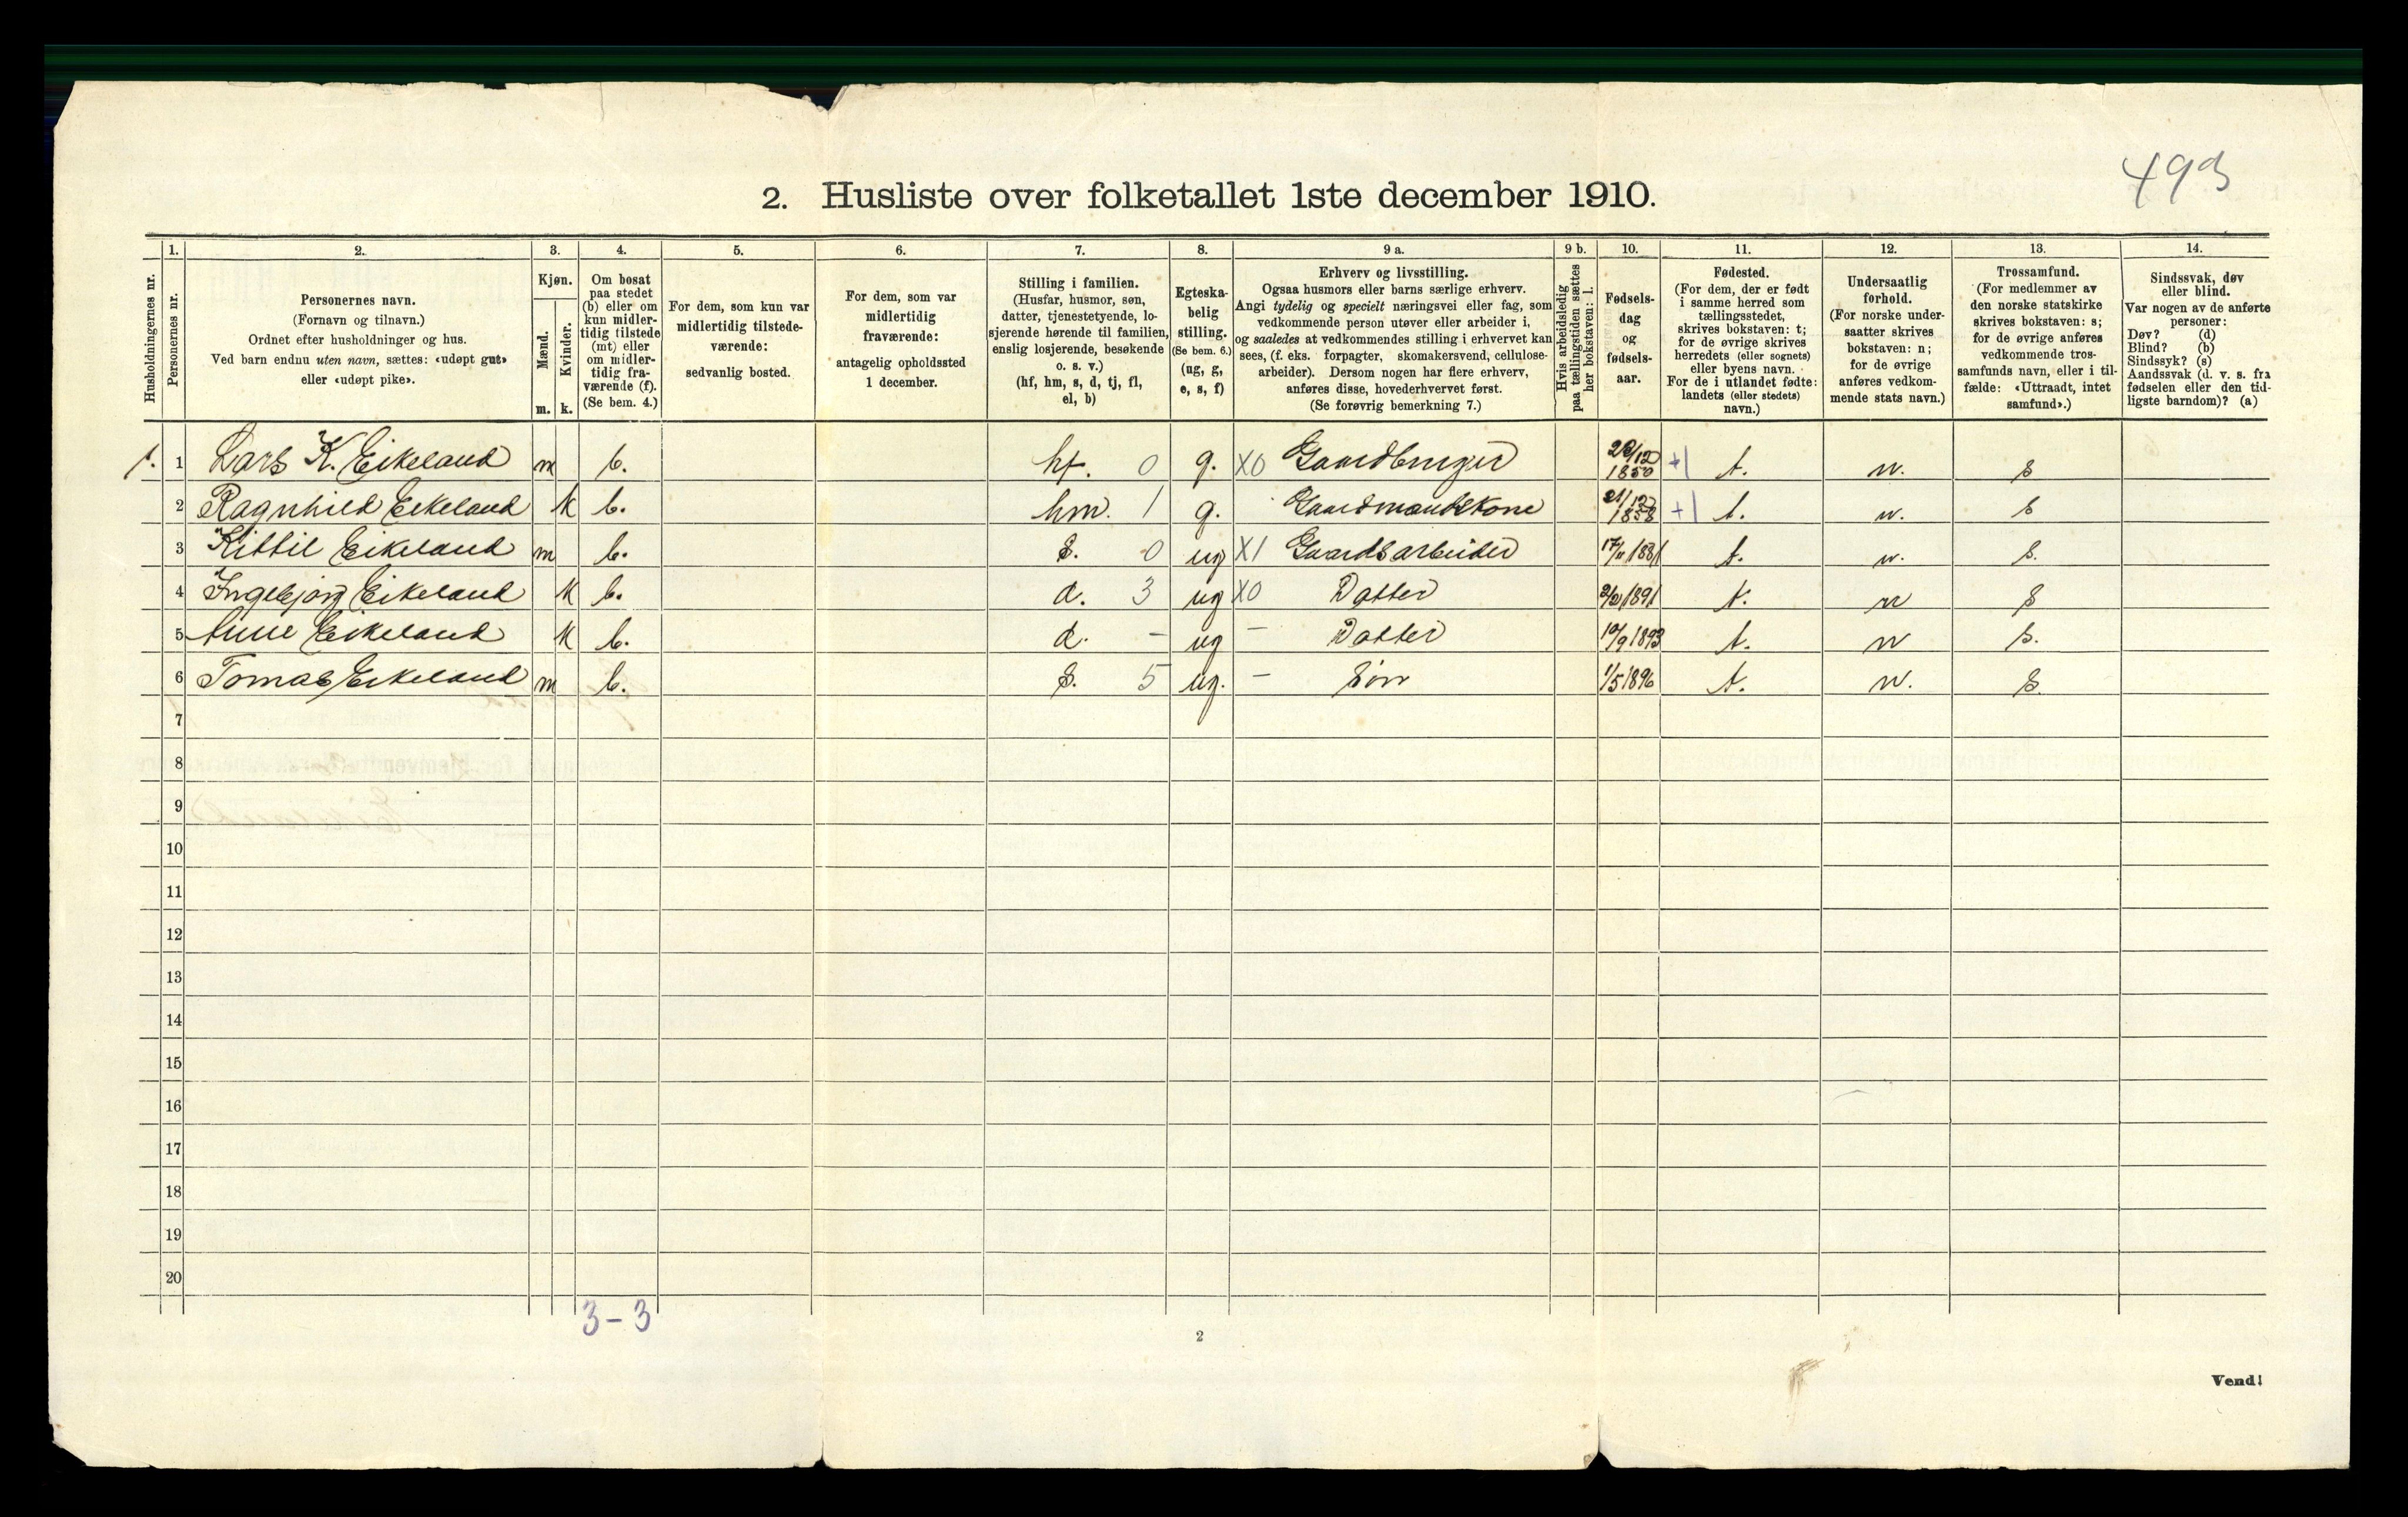 493
2. Husliste over folketallet 1ste december 1910.
Husholdningernes nr.
1.
Personernes nr.
2.
Personernes navn.
(Fornavn og tilnavn.)
Ordnet efter husholdninger og hus.
Ved barn endnu uten navn, sættes: «udøpt gut»
eller «udøpt pike».
3.
Kjøn.
Mænd.
m.
Kvinder.
k.
4.
Om bosat
paa stedet
(b) eller om
kun midler-
tidig tilstede
(mt) eller
om midler-
tidig fra-
værende (f).
(Se bem. 4.)
5.
For dem, som kun var
midlertidig tilstede-
værende:
sedvanlig bosted.
6.
For dem, som var
midlertidig
fraværende:
antagelig opholdssted
1 december.
7.
Stilling i familien.
(Husfar, husmor, søn,
datter, tjenestetyende, lo-
sjerende hørende til familien,
enslig losjerende, besøkende
o. s. v.)
(hf, hm, s, d, tj, fl,
el, b)
8.
Egteska-
belig
stilling.
(Se bem. 6.)
(ug, g,
e, s, f)
9 a.
Erhverv og livsstilling.
Ogsaa husmors eller barns særlige erhverv.
Angi tydelig og specielt næringsvei eller fag, som
vedkommende person utøver eller arbeider i,
og saaledes at vedkommendes stilling i erhvervet kan
sees, (f. eks. forpagter, skomakersvend, cellulose-
arbeider). Dersom nogen har flere erhverv,
anføres disse, hovederhvervet først.
(Se forøvrig bemerkning 7.)
9 b.
Hvis arbeidsledig
paa tællingstiden sættes
her bokstaven: l.
10.
Fødsels-
dag
og
fødsels-
aar.
11.
Fødested.
(For dem, der er født
i samme herred som
tællingsstedet,
skrives bokstaven: t;
for de øvrige skrives
herredets (eller sognets)
eller byens navn.
For de i utlandet fødte:
landets (eller stedets)
navn.)
12.
Undersaatlig
forhold.
(For norske under-
saatter skrives
bokstaven: n;
for de øvrige
anføres vedkom-
mende stats navn.)
13.
Trossamfund.
(For medlemmer av
den norske statskirke
skrives bokstaven: s;
for de øvrige anføres
vedkommende tros-
samfunds navn, eller i til-
fælde: «Uttraadt, intet
samfund».)
14.
Sindssvak, døv
eller blind.
Var nogen av de anførte
personer:
Døv? (d)
Blind? (b)
Sindssyk? (s)
Aandssvak (d. v. s. fra
fødselen eller den tid-
ligste barndom)? (a)
1. 1 Lars K. Eikeland m b. hf. 0 g. X0 Gaardbruger 1850 +1 t. n. s
2 Ragnhild Eikeland k b. hm. 1 g. Gaardmandskone 1858 +1 t. n. s
3 Kittil Eikeland m b. s. 0 ug X1 Gaardsarbeider 1881 t. n. s.
4 Ingebjørg Eikeland k b. d. 3 ug X0 Datter 1891 t. n s
5 Anne Eikeland k b. d. - ug - Datter 10/9 1893 t. n s.
6 Tomas Eikeland m b. s. 5 ug. - Søn 1/5 1896 t. n. s.
7
8
9
10
11
12
13
14
15
16
17
18
19
20
3-3
2
Vend!